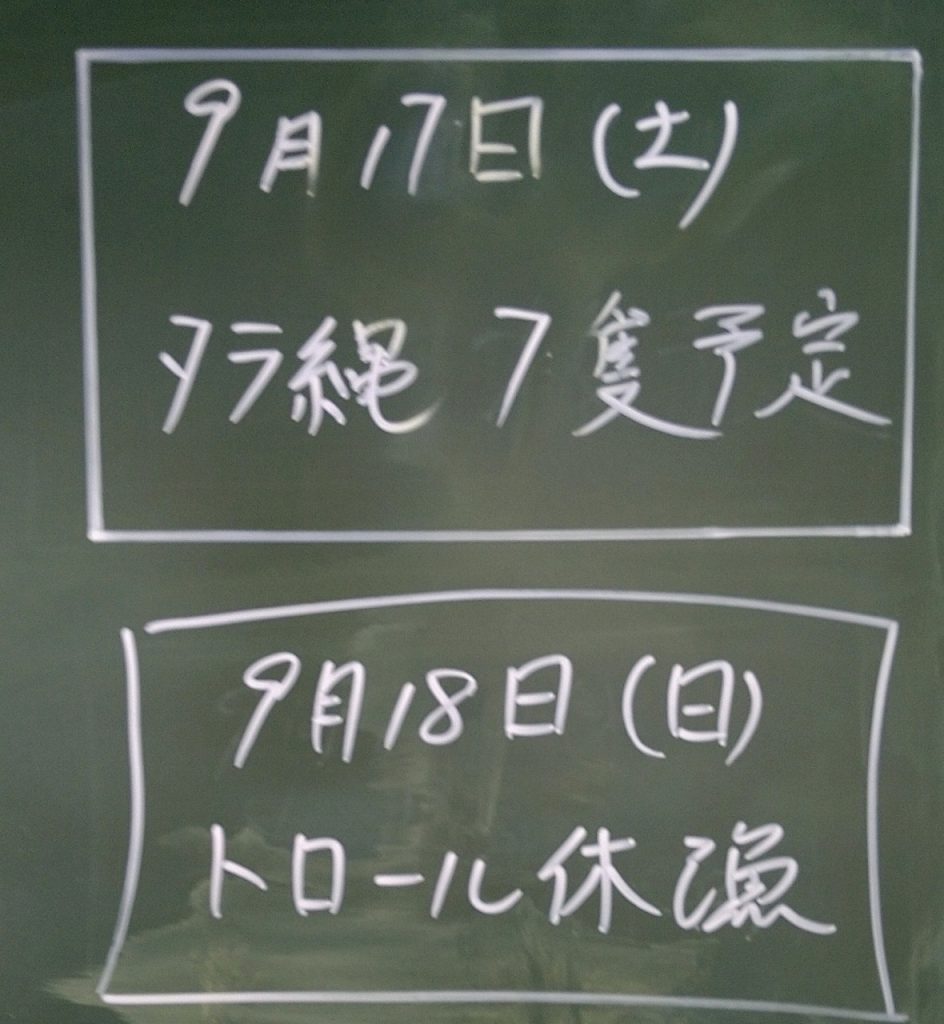 9月17日(土)
タラ縄 7隻予定
9月18日(日)
トロール休漁